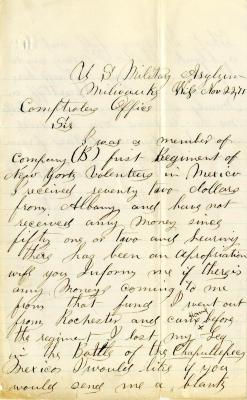 U S Military Asylum
Milwauke Wis Nov 23, 71
Comptroler Office
Sir
I was a member of
Company (B) first Regiment of
New York Volenters in Mexico
I received seventy two dollars
from Albany and have not
received any Money since
fifty one or two and hearing
there has been an Apropriation
will you Inform me if there is
any Moneys coming to me
from that fund I went out
from Rochester and home before
the regiment I lost my Leg
in the Battle of the Chapultepec
Mexico I would like if you
would send me a blank